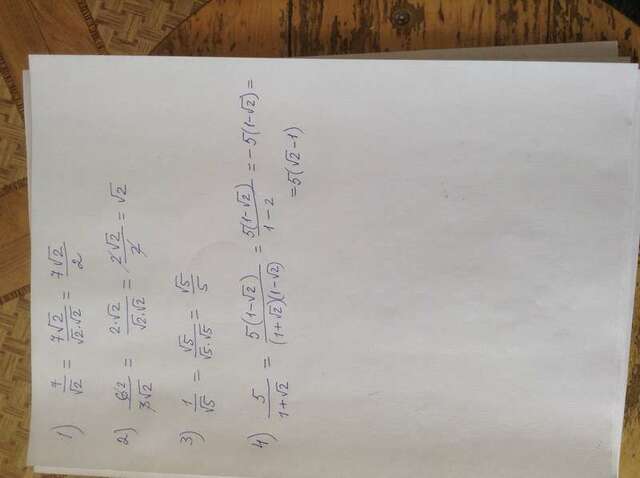 1) 7/√2 = 7√2/(√2·√2) = 7√2/2
2) 6 2/(3√2) = 2·√2/(√2·√2) = 2√2/2 = √2
3) 1/√5 = √5/(√5·√5) = √5/5
4) 5/(1+√2) = 5(1-√2)/((1+√2)(1-√2)) = 5(1-√2)/(1-2) = -5(1-√2) =
=5(√2-1)